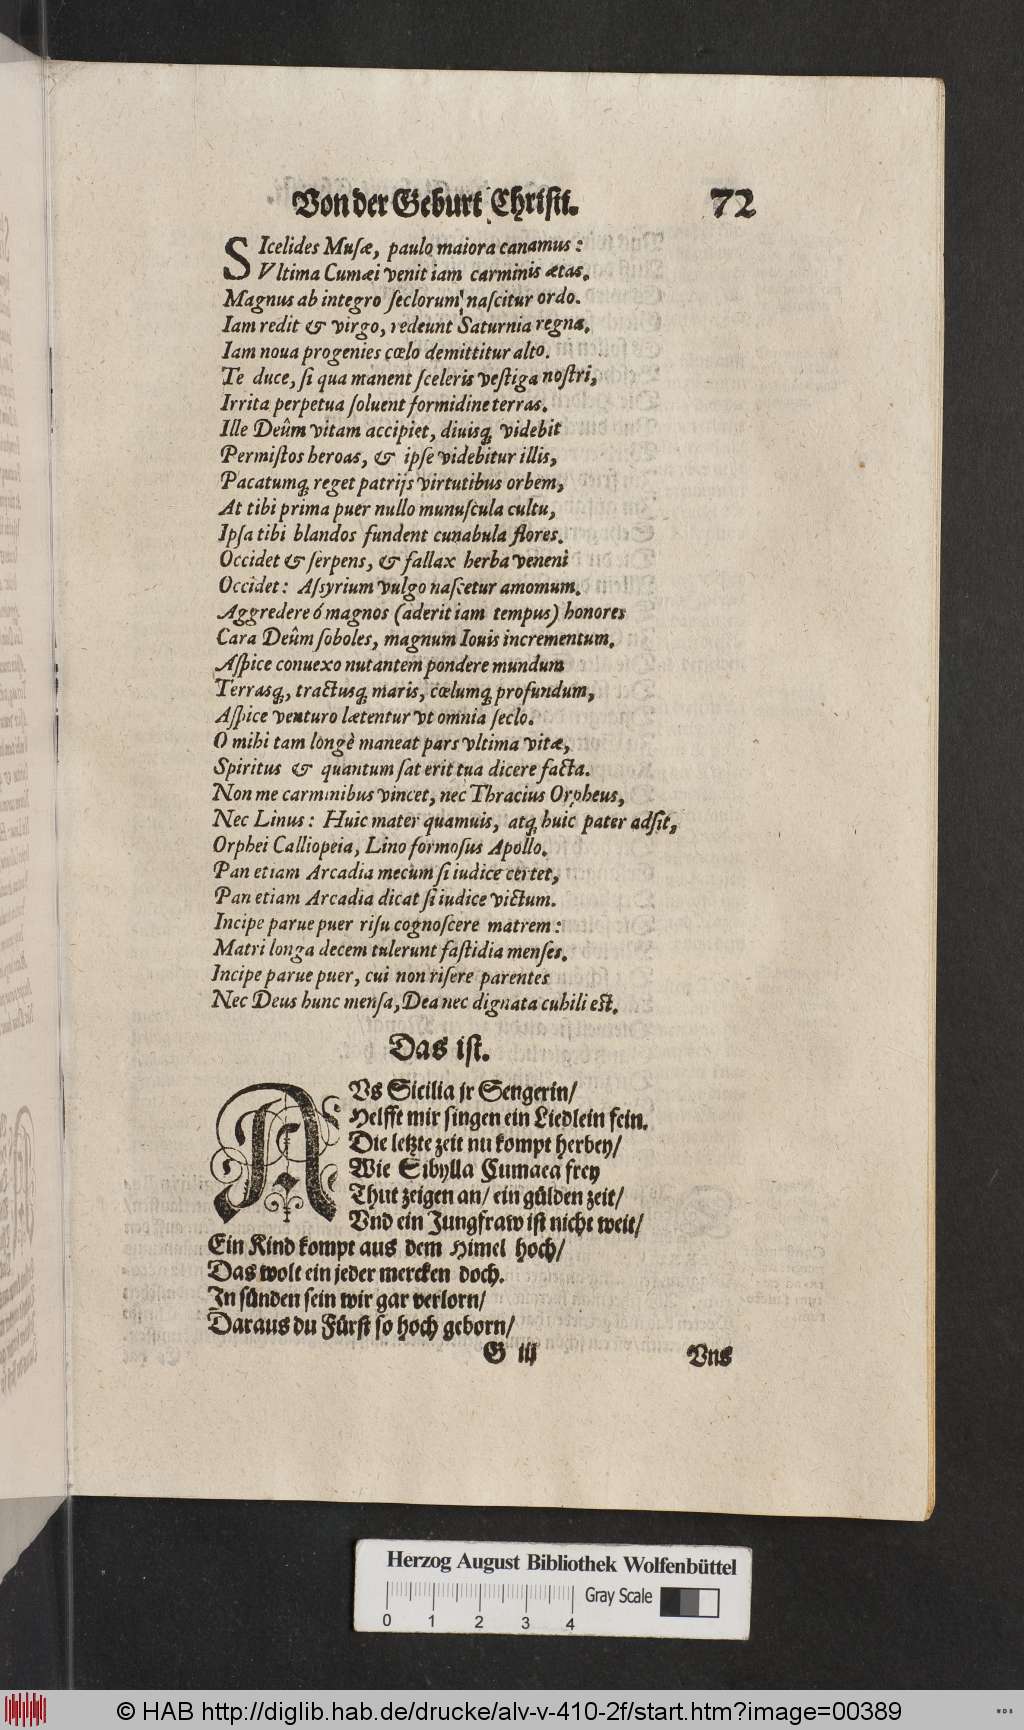 Von der Geburt Christi. 72
SIcelides Musæ, paulo maiora canamus:
Vltima Cumæi venit iam carminis ætas.
Magnus ab integro seclorum nascitur ordo.
Iam redit & virgo, redeunt Saturnia regna.
Iam noua progenies cœlo demittitur alto.
Te duce, si qua manent sceleris vestiga nostri,
Irrita perpetua soluent formidine terras.
Ille Deûm vitam accipiet, diuisq́ videbit
Permistos heroas, & ipse videbitur illis,
Pacatumq́ reget patrijs virtutibus orbem,
At tibi prima puer nullo munuscula cultu,
Ipsa tibi blandos fundent cunabula flores.
Occidet & serpens, & fallax herba veneni
Occidet: Assyrium vulgo nascetur amomum.
Aggredere ó magnos (aderit iam tempus) honores
Cara Deûm soboles, magnum Iouis incrementum.
Aspice conuexo nutantem pondere mundum
Terrasq́, tractusq́ maris, cœlumq́ profundum,
Aspice venturo lætentur vt omnia seclo.
O mihi tam longè maneat pars vltima vitæ,
Spiritus & quantum sat erit tua dicere facta.
Non me carminibus vincet, nec Thracius Orpheus,
Nec Linus: Huic mater quamuis, atq́ huic pater adsit,
Orphei Calliopeia, Lino formosus Apollo.
Pan etiam Arcadia mecum si iudice certet,
Pan etiam Arcadia dicat si iudice victum.
Incipe parue puer risu cognoscere matrem:
Matri longa decem tulerunt fastidia menses.
Incipe parue puer, cui non risere parentes
Nec Deus hunc mensa, Dea nec dignata cubili est.
Das ist.
AVs Sicilia jr Sengerin/
Helfft mir singen ein Liedlein fein.
Die letzte zeit nu kompt herbey/
Wie Sibylla Cumaea frey
Thut zeigen an/ ein gülden zeit/
Vnd ein Jungfraw ist nicht weit/
Ein Kind kompt aus dem Himel hoch/
Das wolt ein jeder mercken doch.
In sünden sein wir gar verlorn/
Daraus du Fürst so hoch geborn/
G iij Vns
Herzog August Bibliothek Wolfenbüttel
Gray Scale
0 1 2 3 4
© HAB http://diglib.hab.de/drucke/alv-v-410-2f/start.htm?image=00389